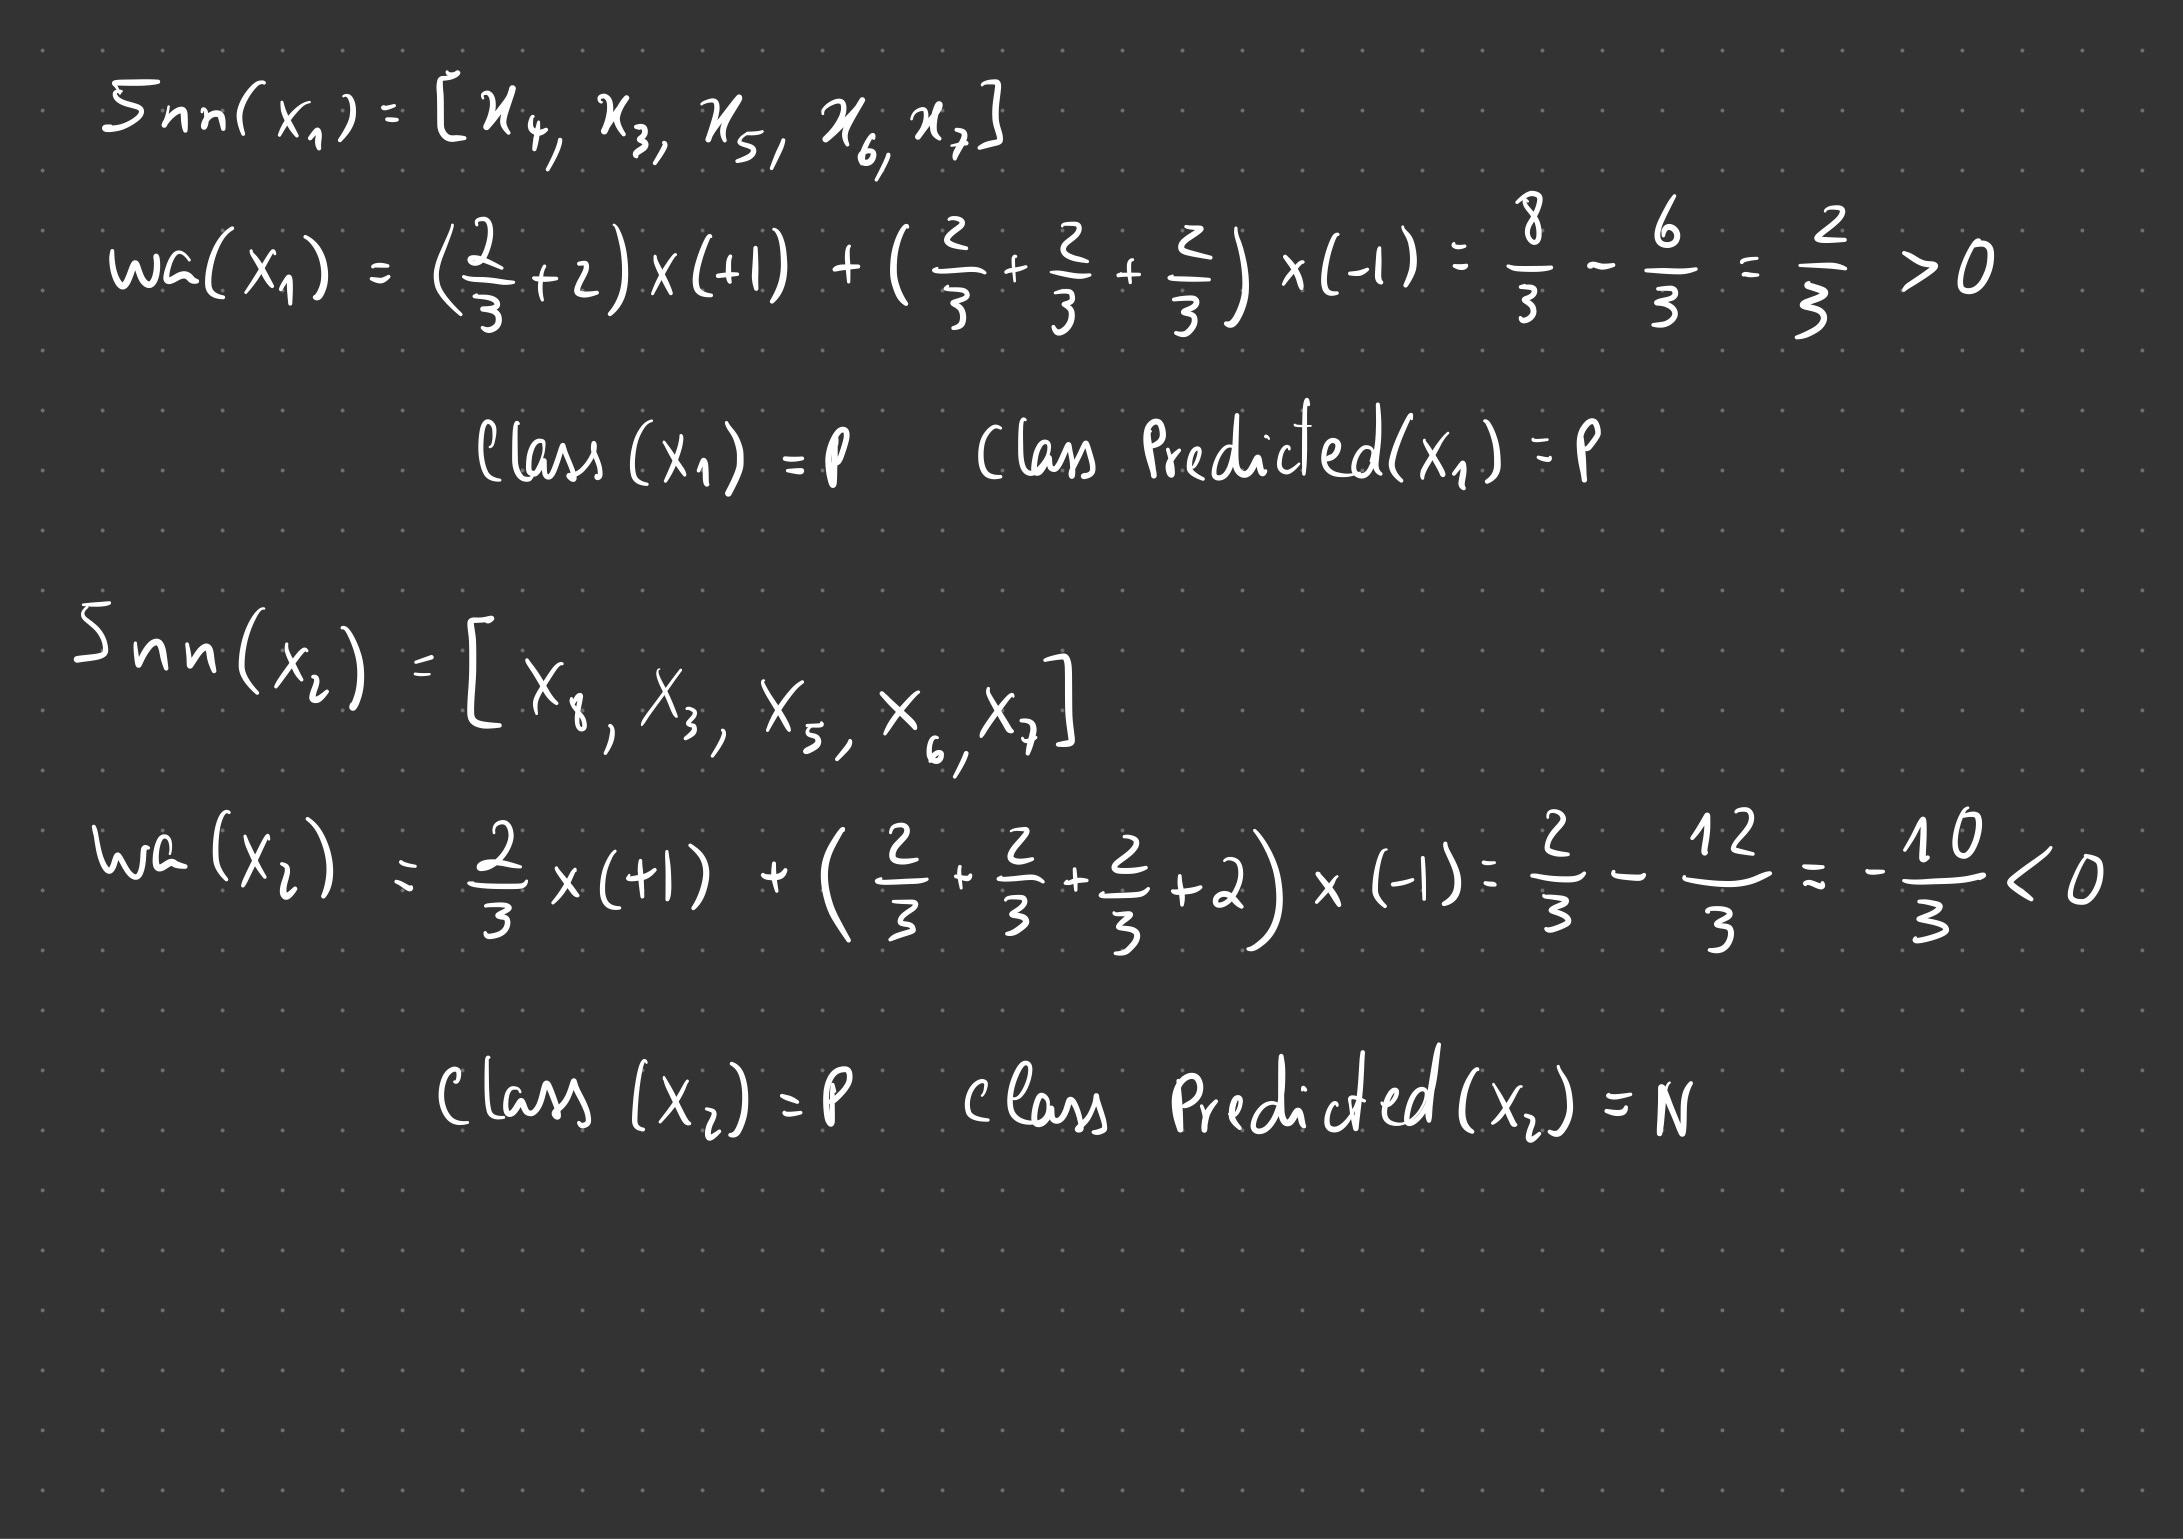 5nn(x₁) = [x₄, x₃, x₅, x₆, x₇]
wa(x₁) = (2/3 + 2) x (+1) + (2/3 + 2/3 + 2/3) x (-1) = 8/3 - 6/3 = 2/3 > 0
Class (x₁) = P Class Predicted(x₁) = P
5nn(x₂) = [x₈, x₃, x₅, x₆, x₇]
wa(x₂) = 2/3 x (+1) + (2/3 + 2/3 + 2/3 + 2) x (-1) = 2/3 - 12/3 = -10/3 < 0
Class (x₂) = P Class Predicted(x₂) = N